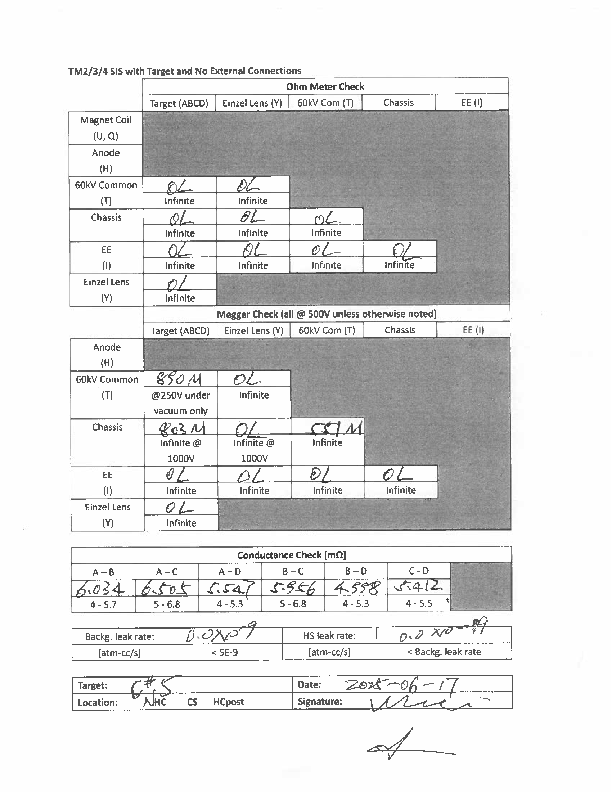 TM2/3/4 SIS with Target and No External Connections
Ohm Meter Check
Target (ABCD) Einzel Lens (Y) 60kV Com (T) Chassis EE (I)
Magnet Coil
(U, Q)
Anode
(H)
60kV Common OL OL
(T) Infinite Infinite
Chassis OL OL OL
Infinite Infinite Infinite
EE OL OL OL OL
(I) Infinite Infinite Infinite Infinite
Einzel Lens OL
(Y) Infinite
Meggar Check (all @ 500V unless otherwise noted)
Target (ABCD) Einzel Lens (Y) 60kV Com (T) Chassis EE (I)
Anode
(H)
60kV Common 890 M OL
(T) @250V under Infinite
vacuum only
Chassis 803 M OL 551 M
Infinite @ Infinite @ Infinite
1000V 1000V
EE OL OL OL OL
(I) Infinite Infinite Infinite Infinite
Einzel Lens OL
(Y) Infinite
Conductance Check [mΩ]
A – B A – C A – D B – C B – D C - D
6.034 6.505 5.547 5.956 4.998 5.412
4 - 5.7 5 - 6.8 4 - 5.3 5 - 6.8 4 - 5.3 4 - 5.5
Backg. leak rate: 0.0x10-9 HS leak rate: 0.0 x10-9
[atm-cc/s] < 5E-9 [atm-cc/s] < Backg. leak rate
Target: C#5 Date: 2025-06-17
Location: NHC CS HCpost Signature: